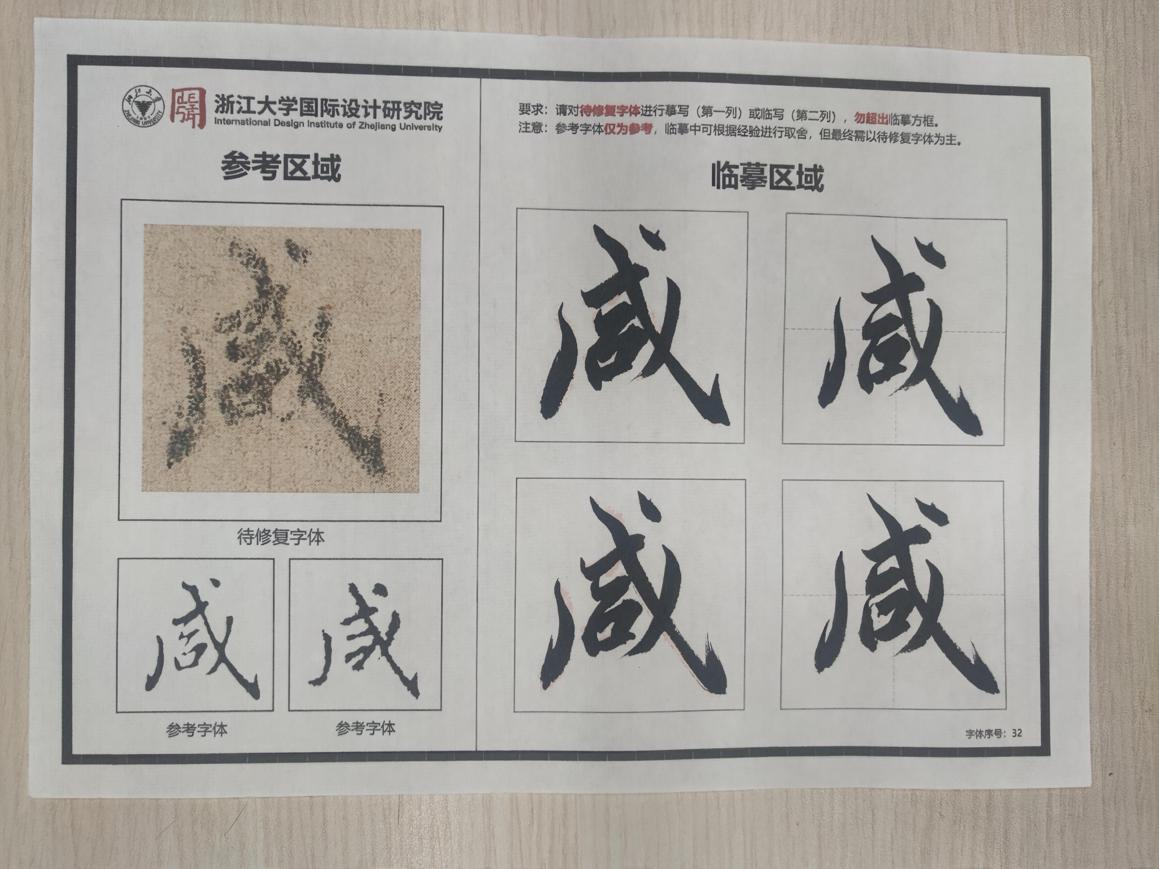 浙江大学国际设计研究院
International Design Institute of Zhejiang University
参考区域
咸
待修复字体
咸 咸
参考字体 参考字体
要求：请对待修复字体进行摹写（第一列）或临写（第二列），勿超出临摹方框。
注意：参考字体仅为参考，临摹中可根据经验进行取舍，但最终需以待修复字体为主。
临摹区域
咸 咸
咸 咸
字体序号：32